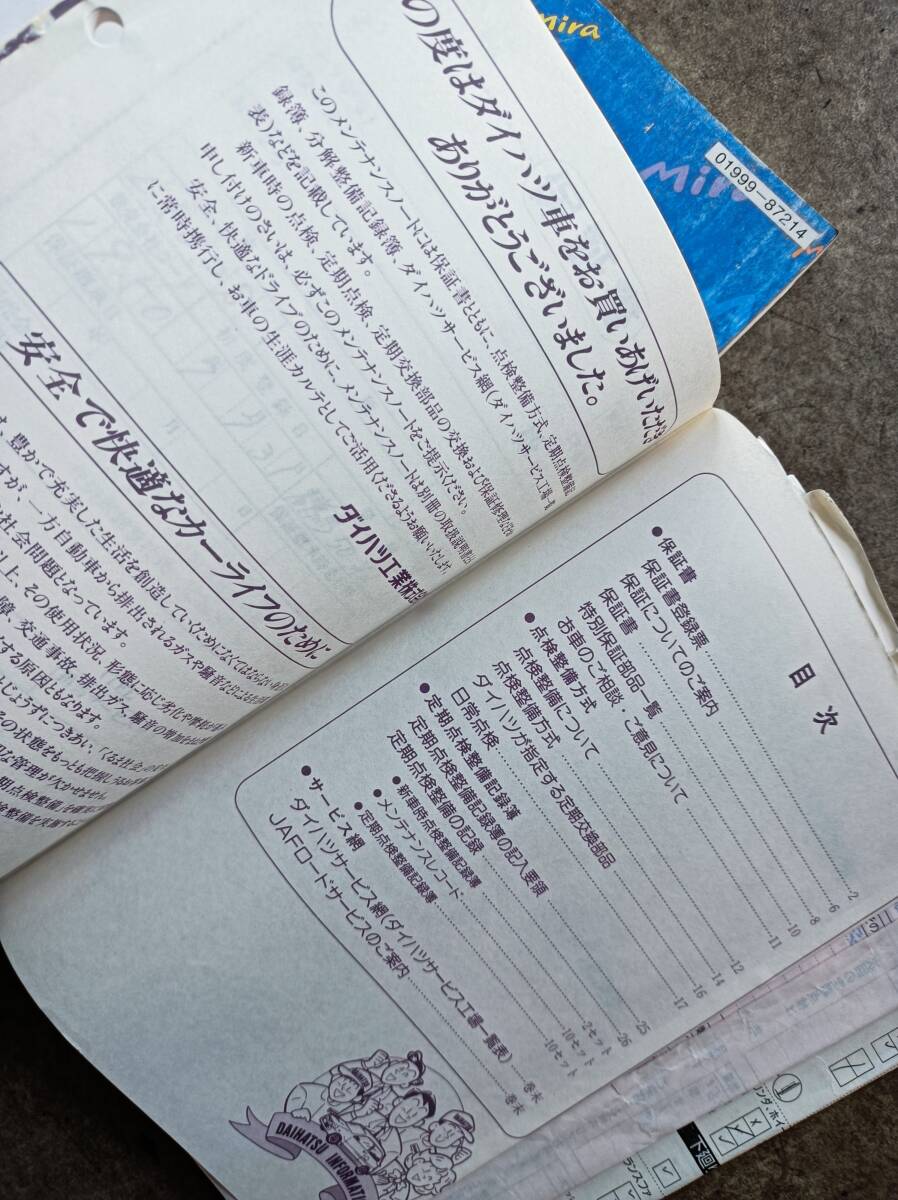 の度はダイハツ車をお買いあげいただき
ありがとうございました。
このメンテナンスノートには保証書とともに、点検整備方式、定期点検整備記
録簿、分解整備記録簿、ダイハツサービス網(ダイハツサービス工場一覧
表)などを記載しています。
新車時の点検、定期点検、定期交換部品の交換および保証修理などの
申し付けのさいは、必ずこのメンテナンスノートをご提示ください。
安全、快適なドライブのために、メンテナンスノートは別冊の取扱説明書と
に常時携行し、お車の生涯カルテとしてご活用くださるようお願いいたします。
ダイハツ工業株式
安全で快適なカーライフのために
豊かで充実した生活を創造していくためになくてはならない
すが、一方自動車から排出されるガスや騒音などによる
社会問題となっています。
上、その使用状況、形態に応じ劣化や摩耗が
障、交通事故、排出ガス、騒音の増加を
する原因ともなります。
じょうずにつきあい、「くるま社会」の
の状態をもっともよく把握しうる
な管理が欠かせません。
期点検整備」を確実に
検整備を実施す
目 次
●保証書
保証書登録票 2
保証についてのご案内 6
保証書 8
特別保証部品一覧 10
お車のご相談・ご意見について 11
●点検整備方式
点検整備について 12
点検整備方式 14
ダイハツが指定する定期交換部品 16
日常点検 17
●定期点検整備記録簿
定期点検整備記録簿の記入要領 25
定期点検整備の記録 26
●新車時点検整備記録簿 2セット
●メンテナンスレコード 10セット
●定期点検整備記録簿 10セット
●サービス網
ダイハツサービス網(ダイハツサービス工場一覧表) 巻末
JAFロードサービスのご案内 巻末
DAIHATSU INFORMATI
Mira
Mira
01999-87214
下廻